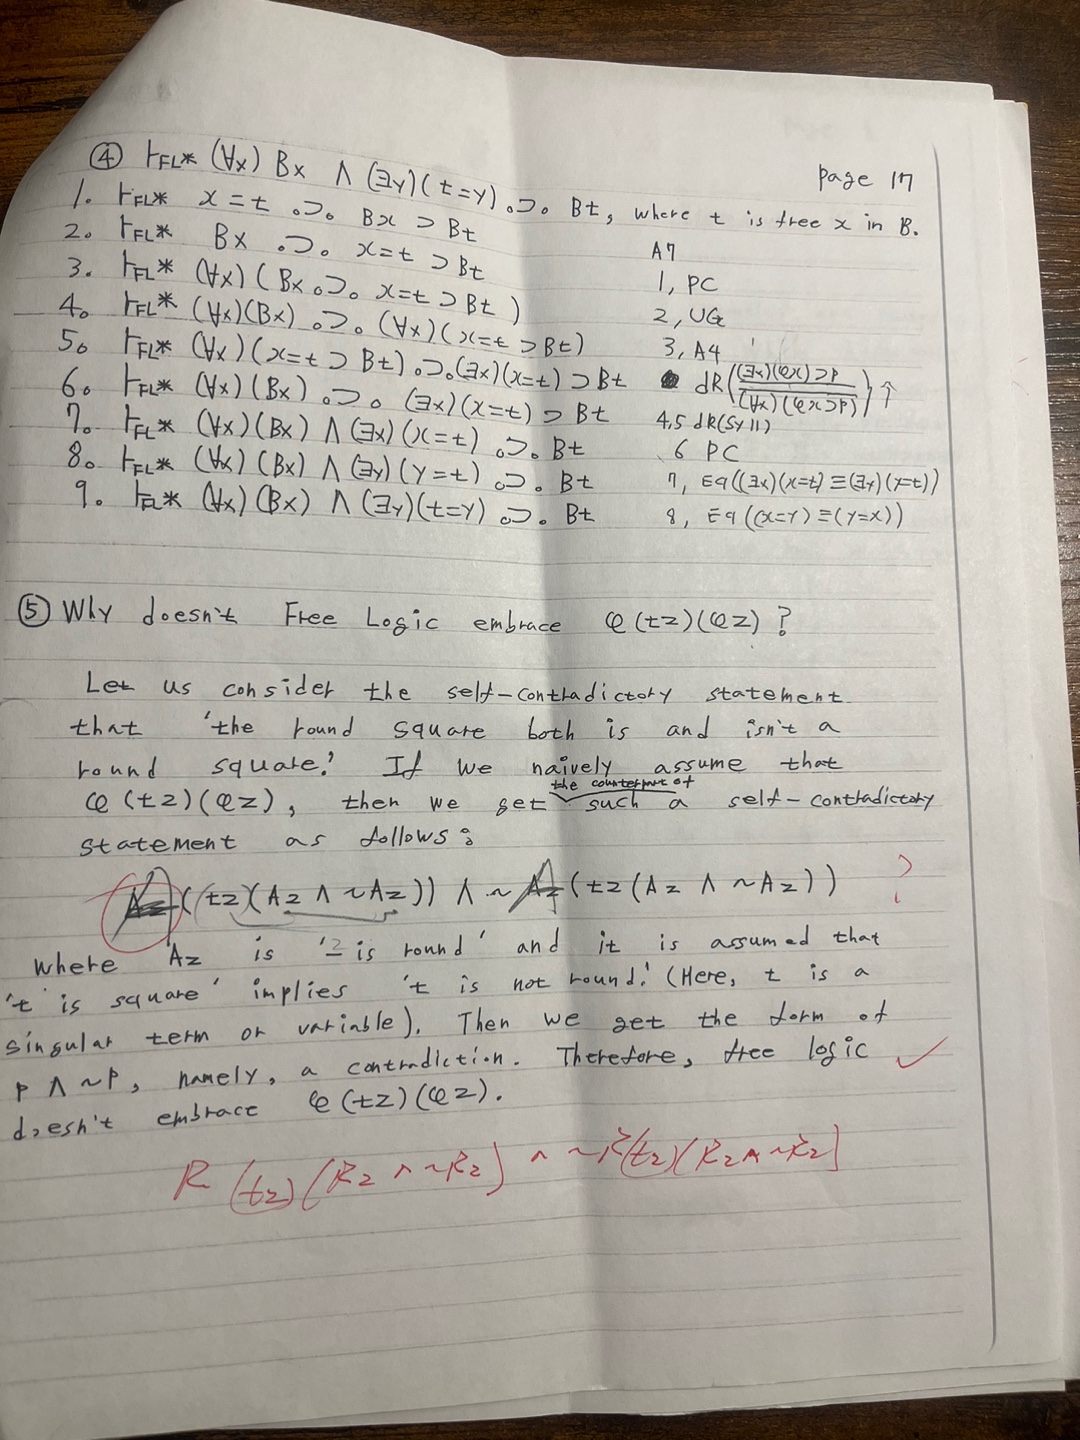 page 17
④ ⊢FL* (∀x) Bx ∧ (∃y)(t=y) .⊃. Bt, where t is free x in B.
1. ⊢FL* x=t .⊃. Bx ⊃ Bt A7
2. ⊢FL* Bx .⊃. x=t ⊃ Bt 1, PC
3. ⊢FL* (∀x)(Bx .⊃. x=t ⊃ Bt) 2, UG
4. ⊢FL* (∀x)(Bx) .⊃. (∀x)(x=t ⊃ Bt) 3, A4
5. ⊢FL* (∀x)(x=t ⊃ Bt) .⊃. (∃x)(x=t) ⊃ Bt dR((∃x)(φx)⊃p / (∀x)(φx⊃p)) ↑
6. ⊢FL* (∀x)(Bx) .⊃. (∃x)(x=t) ⊃ Bt 4,5 dR(Syll)
7. ⊢FL* (∀x)(Bx) ∧ (∃x)(x=t) .⊃. Bt 6 PC
8. ⊢FL* (∀x)(Bx) ∧ (∃y)(y=t) .⊃. Bt 7, Eq((∃x)(x=t) ≡ (∃y)(y=t))
9. ⊢FL* (∀x)(Bx) ∧ (∃y)(t=y) .⊃. Bt 8, Eq((x=y) ≡ (y=x))
⑤ Why doesn't Free Logic embrace φ(tz)(φz)?
Let us consider the self-contradictory statement
that 'the round square both is and isn't a
round square.' If we naively assume that
φ(tz)(φz), then we get the counterpart of such a self-contradictory
statement as follows:
Az(tz)(Az ∧ ~Az)) ∧ ~Az(tz(Az ∧ ~Az)) ?
where 'Az is 'z is round' and it is assumed that
't is square' implies 't is not round.' (Here, t is a
singular term or variable). Then we get the form of
p ∧ ~p, namely, a contradiction. Therefore, free logic
doesn't embrace φ(tz)(φz).
R(tz)(Rz ∧ ~Rz) ∧ ~R(tz)(Rz ∧ ~Rz)